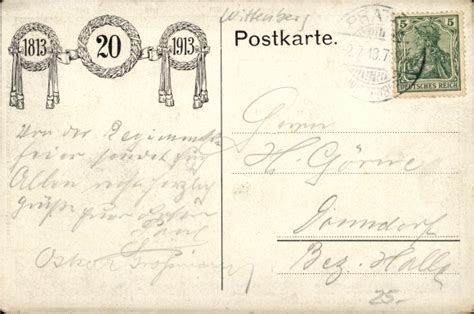 1813
20
1913
Wittenberg
Postkarte.
5
5
DEUTSCHES REICH
Von der Regiments-
feier sendet für
Allen recht herzlich
Grüße
Oskar
Herrn
H. Görne
Dönndorf
Bez. Halle
25.-